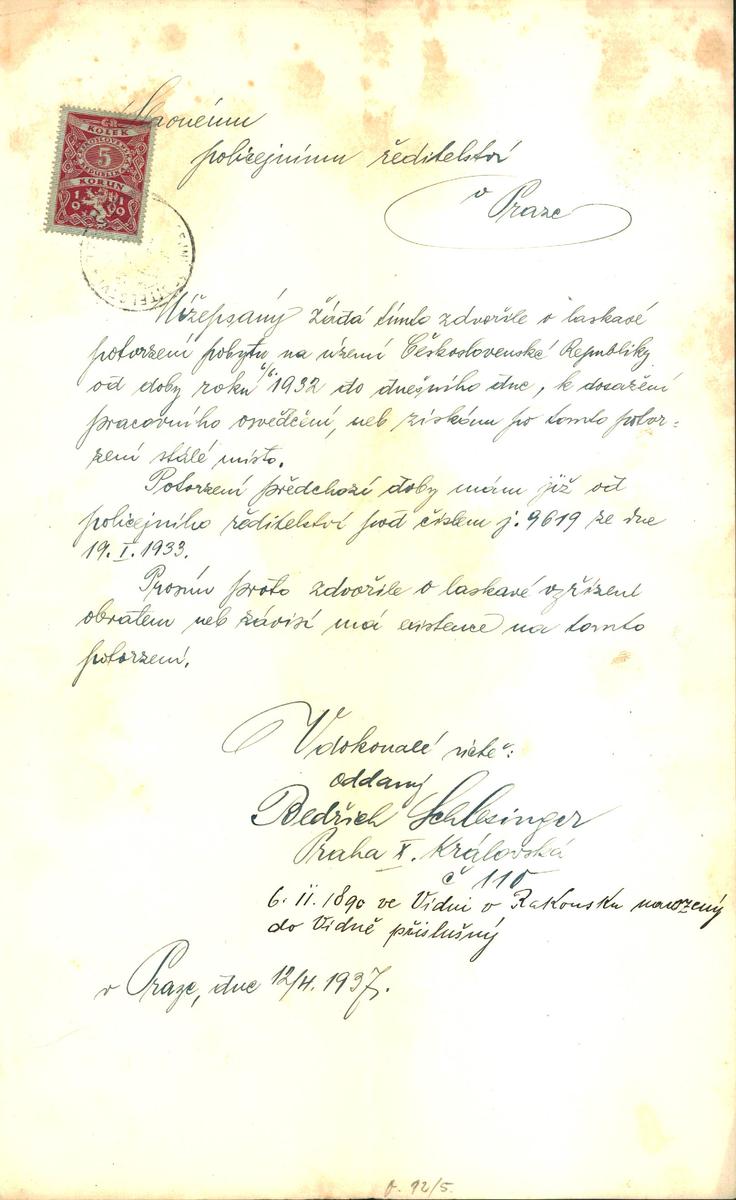 Slavnému
policejnímu ředitelství
v Praze
KOLEK
5
KORUN
1919
Nížepsaný žádá tímto zdvořile o laskavé
potvrzení pobytu na území Československé Republiky
od doby roku 1932 do dnešního dne, k dosažení
pracovního osvědčení, neb získám po tomto potvr=
zení stálé místo.
Potvrzení předchozí doby mám již od
policejního ředitelství pod číslem j. 9619 ze dne
19. I. 1933.
Prosím proto zdvořile o laskavé vyřízení
obratem neb závisí má existence na tomto
potvrzení.
V dokonalé úctě:
oddaný
Bedřich Schlesinger
Praha X. Královská
č 110
6. II. 1890 ve Vídni v Rakousku narozený
do Vídně příslušný
v Praze, dne 12/4. 1937.